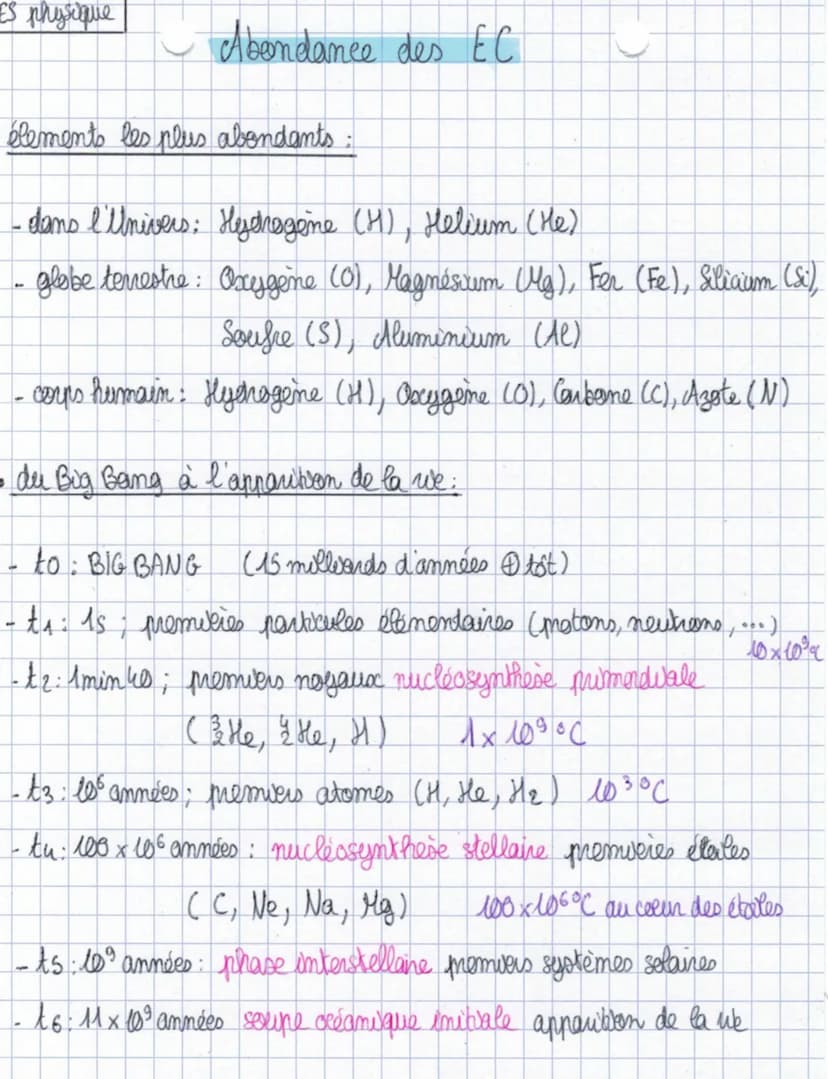 ES physique
Abondance des EC
élements les plus abondants :
- dans l'Univers : Hydrogène (H), Helium (He)
- globe terrestre : Oxygène (O), Magnésium (Mg), Fer (Fe), Silicium (Si),
Soufre (S), Aluminium (Al)
- corps humain : Hydrogène (H), Oxygène (O), Carbone (C), Azote (N)
• du Big Bang à l'apparition de la vie :
- t0 : BIG BANG (15 milliards d'années ⊕ tôt)
- t1 : 1s ; premières particules élémentaires (protons, neutrons, ...)
10 x 10⁹ °C
- t2 : 1min40 ; premiers noyaux nucléosynthèse primordiale
(³₂He, ⁴₂He, H) 1 x 10⁹ °C
- t3 : 10⁶ années ; premiers atomes (H, He, H2) 10³ °C
- t4 : 100 x 10⁶ années : nucléosynthèse stellaire premières étoiles
(C, Ne, Na, Mg) 100 x 10⁶ °C au coeur des étoiles
- t5 : 10⁹ années : phase interstellaire premiers systèmes solaires
- t6 : 11 x 10⁹ années soupe océanique initiale apparition de la vie